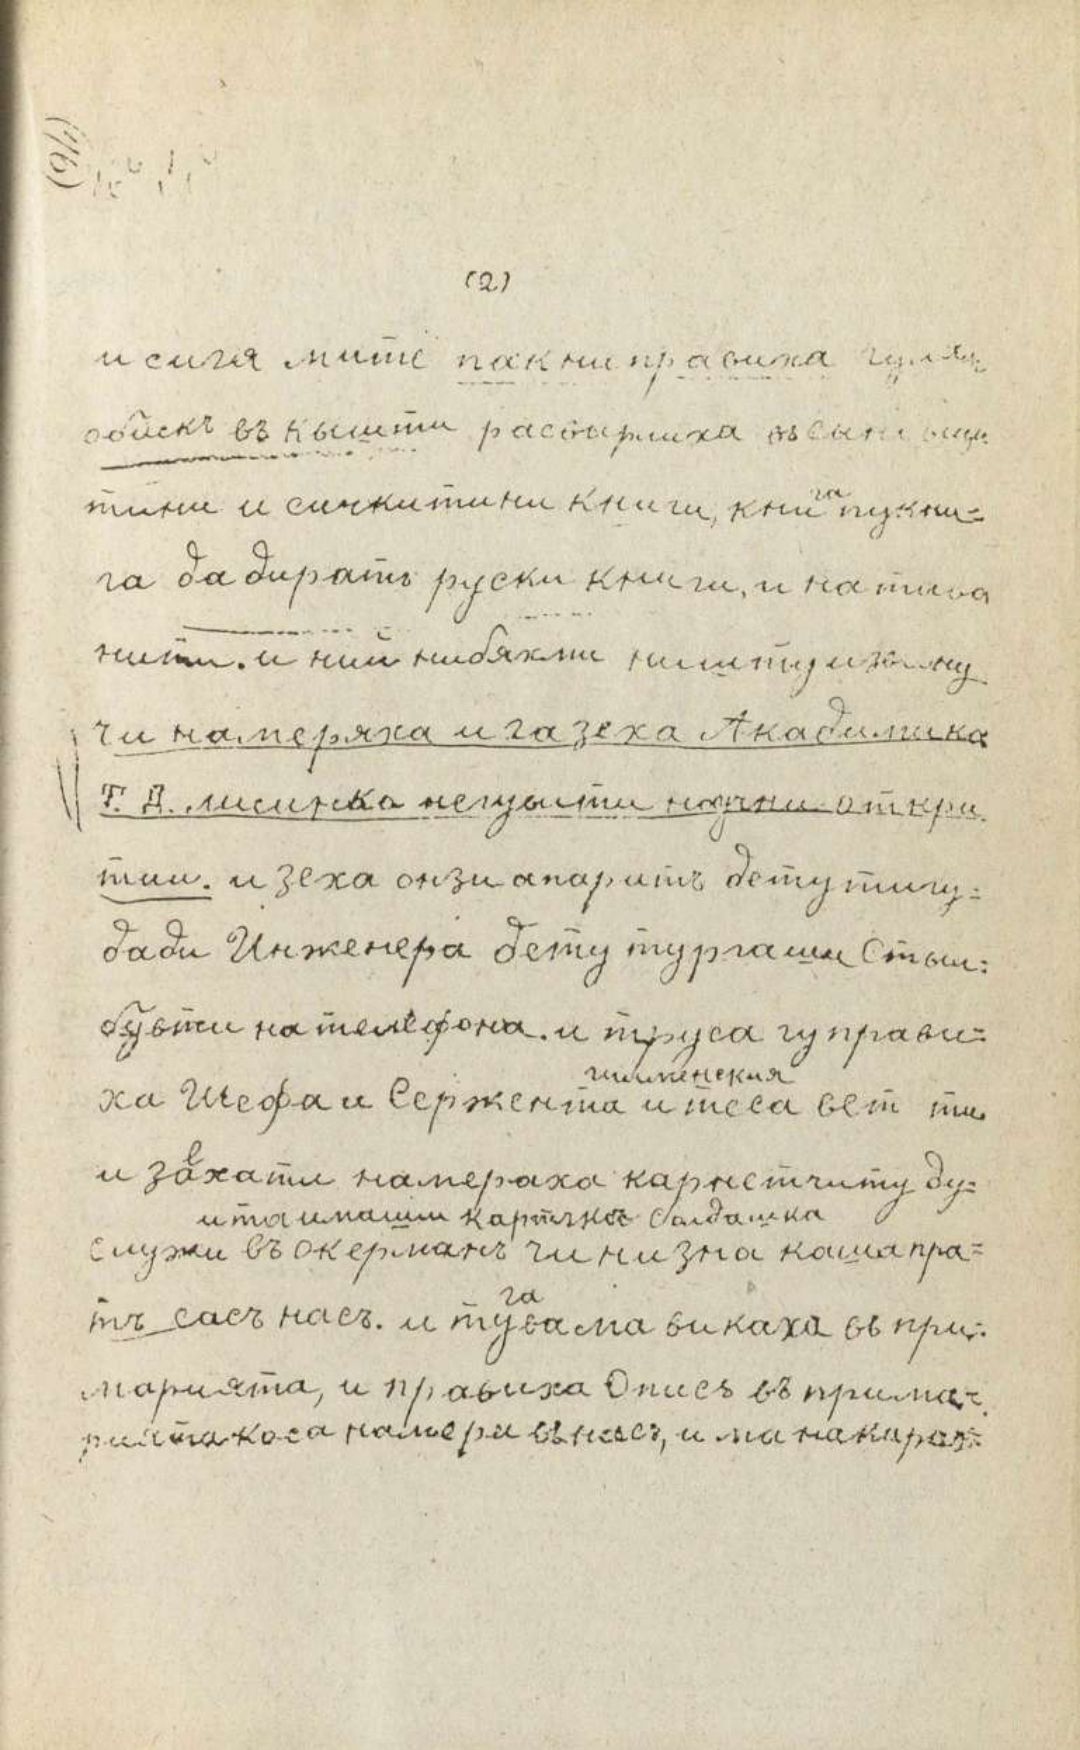 (2)
и сигя мите пак ни правиха
обискъ въ кышти расфырлиха
тини и сичкитини книги, книга пукни=
га да дирать руски книги, и на това
нити. и ний нибяхми ништу
чи намеряха и га зеха Академика
Т. Д. лисинка негувти научни открі
тии. и зеха онзи апаратъ дету тигу=
дади Инженера дету тургаши Стыл=
бувти на телефона. и труса гу прави=
ха Шефа и Сержента и теса вет ти
гименския
и захати намераха карнетчиту ду=
в
и таимаши картичка салдашка
служи въ Окерманъ чи низна каша пра=
тъ сасъ насъ. и тувама викаха въ при=
га
марията, и правиха Описъ въ прима=
рията коса намери в насъ, и ма накарат=